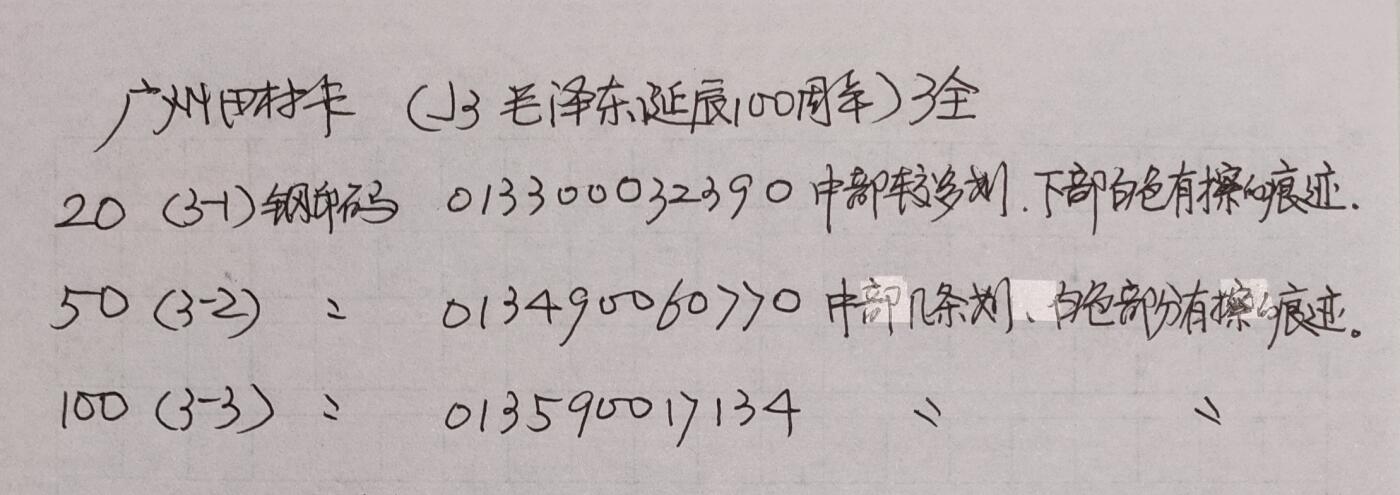 广州田村卡 (J3 毛泽东诞辰100周年) 3全
20 (3-1) 钢印码 013300032390 中部较多划.下部白色有擦的痕迹.
50 (3-2) 〃 013490060770 中部几条划、白色部分有擦的痕迹。
100 (3-3) 〃 013590017134 〃 〃